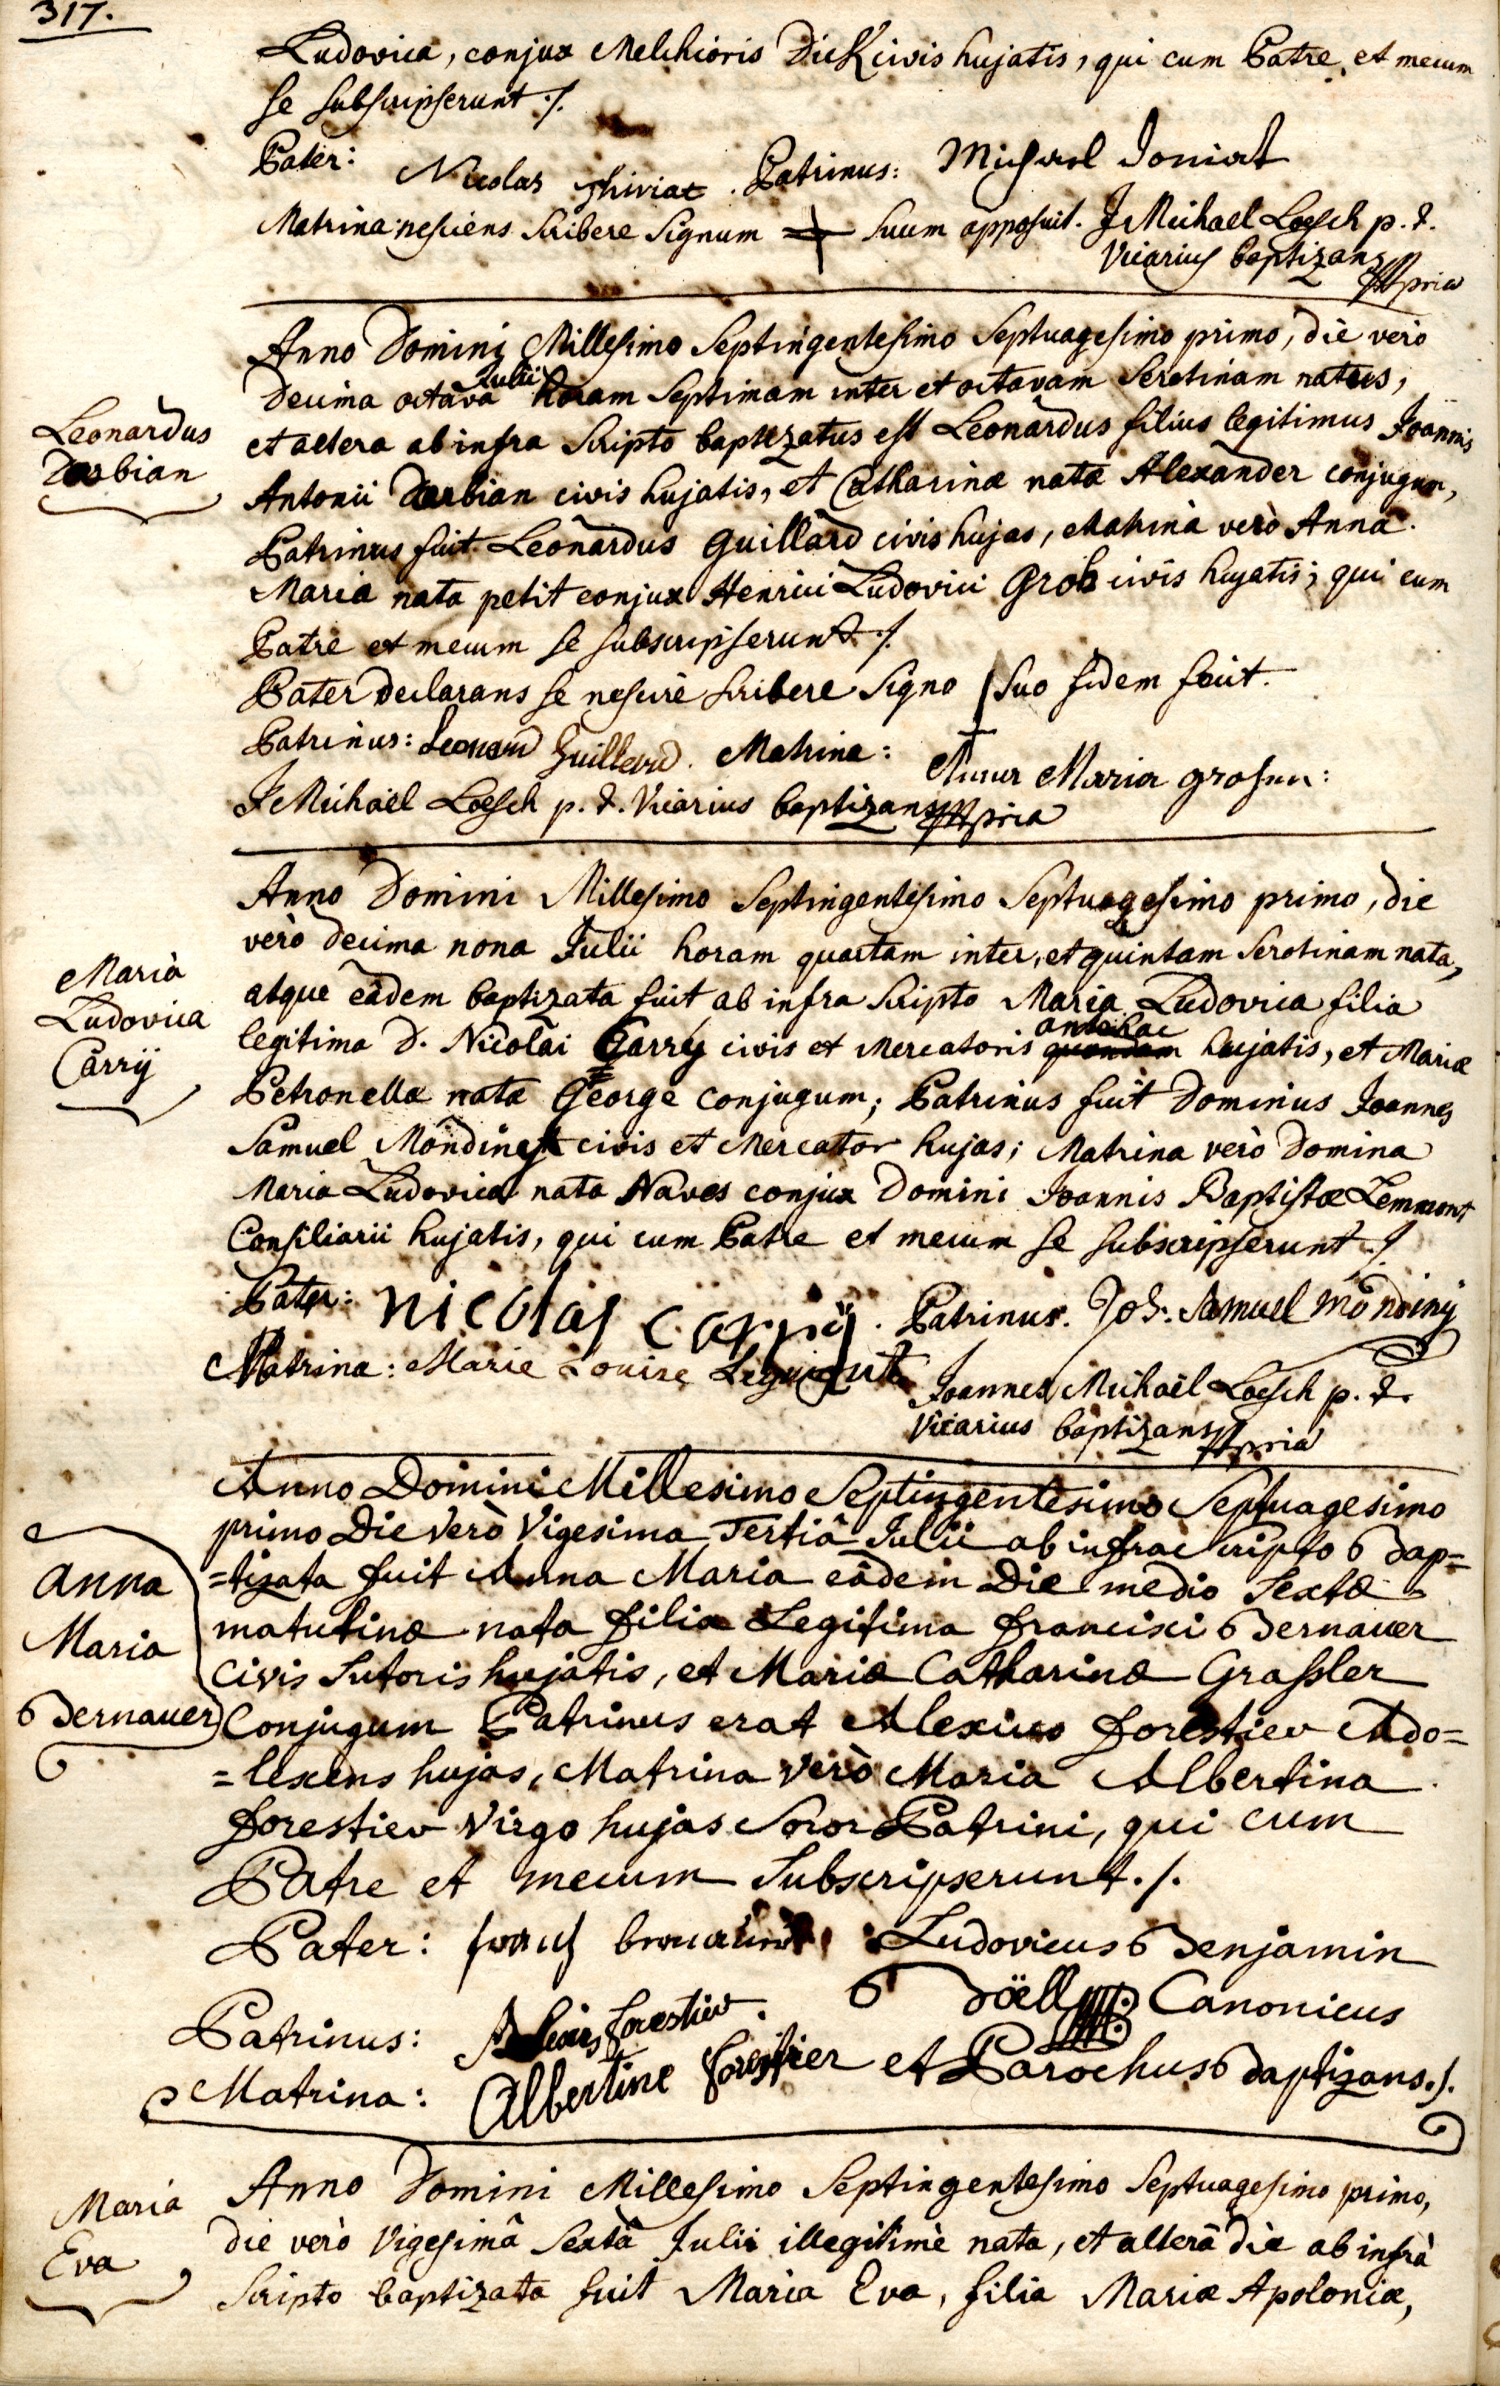 317.
Ludovica, conjux Melchioris Dick civis hujatis, qui cum Patre, et mecum
se subscripserunt ./.
Pater: Nicolas Thiriat . Patrinus: Michael Toniat
Matrina nesciens scribere signum suum apposuit. J Michael Loesch p. t.
Vicarius baptizans mppria
Anno Domini Millesimo Septingentesimo Septuagesimo primo, die verò
Leonardus
Decima octava Julii horam septimam inter et octavam serotinam natus,
Dorbian
et altera ab infra scripto baptizatus est Leonardus filius legitimus Joannis
Antonii Dorbian civis hujatis, et Catharinæ natæ Alexander conjugum,
Patrinus fuit Leonardus Guillard civis hujas, Matrina verò Anna
Maria nata petit conjux Henrici Ludovici Grob civis hujatis; qui cum
Patre et mecum se subscripserunt ./.
Pater declarans se nescire scribere signo suo fidem fecit.
Patrinus: Leonard Guillard. Matrina: Anna Maria
J Michaël Loesch p. t. Vicarius baptizans mppria
Anno Domini Millesimo Septingentesimo Septuagesimo primo, die
Maria
Ludovica
Carrÿ
verò decima nona Julii horam quartam inter, et quintam serotinam nata,
atque eâdem baptizata fuit ab infra scripto Maria Ludovica filia
legitima D. Nicolai Carrÿ civis et Mercatoris quondam antehac hujatis, et Mariæ
Petronellæ natæ George conjugum; Patrinus fuit Dominus Joannes
Samuel civis et Mercator hujas; Matrina verò Domina
Maria Ludovica nata Naves conjux Domini Joannis Baptistæ Lemmont
Consiliarii hujatis, qui cum Patre et mecum se subscripserunt ./.
Pater: nicolas carrÿ . Patrinus. Joh: Samuel mondiny
Matrina: Marie Louise
Joannes Michaël Loesch p. t.
Vicarius baptizans mppria
Anno Domini Millesimo Septingentesimo Septuagesimo
Anna
Maria
Bernauer
primo Die verò Vigesima Tertiâ Julii ab infrascripto Bap=
=tizata fuit Anna Maria eâdem Die medio sextæ
matutinæ nata filia Legitima francisci Bernauer
Civis Sutoris hujatis, et Mariæ Catharinæ Grassler
Conjugum Patrinus erat Alexius forestier Ado=
=lescens hujas, Matrina verò Maria Albertina
forestier Virgo hujas Soror Patrini, qui cum
Patre et mecum Subscripserunt ./.
Pater: Ludovicus Benjamin
Döell Canonicus
Patrinus: Alexis forestier.
Matrina: Albertine forestier et Parochus Baptizans ./.
Maria
Eva
Anno Domini Millesimo Septingentesimo Septuagesimo primo,
die verò Vigesimâ sextâ Julii illegitimè nata, et alterâ die ab infrà
scripto baptizata fuit Maria Eva, filia Mariæ Apoloniæ,